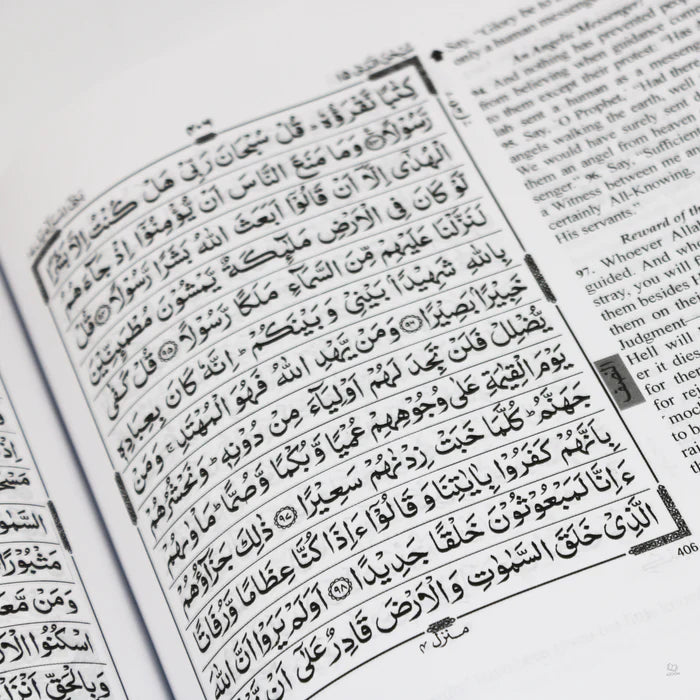 كِتٰبًا نَّقْرَؤُهٗ ؕ قُلْ سُبْحَانَ رَبِّيْ هَلْ كُنْتُ اِلَّا بَشَرًا
رَّسُوْلًا ۹۳ وَمَا مَنَعَ النَّاسَ اَنْ يُّؤْمِنُوْۤا اِذْ جَآءَهُمُ
الْهُدٰۤى اِلَّاۤ اَنْ قَالُوْۤا اَبَعَثَ اللّٰهُ بَشَرًا رَّسُوْلًا ۹۴ قُلْ
لَّوْ كَانَ فِى الْاَرْضِ مَلٰٓئِكَةٌ يَّمْشُوْنَ مُطْمَئِنِّيْنَ
لَنَزَّلْنَا عَلَيْهِمْ مِّنَ السَّمَآءِ مَلَكًا رَّسُوْلًا ۹۵ قُلْ كَفٰى
بِاللّٰهِ شَهِيْدًۢا بَيْنِيْ وَبَيْنَكُمْ ؕ اِنَّهٗ كَانَ بِعِبَادِهٖ
خَبِيْرًۢا بَصِيْرًا ۹۶ وَمَنْ يَّهْدِ اللّٰهُ فَهُوَ الْمُهْتَدِ ۚ وَمَنْ
يُّضْلِلْ فَلَنْ تَجِدَ لَهُمْ اَوْلِيَآءَ مِنْ دُوْنِهٖ ؕ وَنَحْشُرُهُمْ
يَوْمَ الْقِيٰمَةِ عَلٰى وُجُوْهِهِمْ عُمْيًا وَّبُكْمًا وَّصُمًّا ؕ مَاْوٰىهُمْ
جَهَنَّمُ ؕ كُلَّمَا خَبَتْ زِدْنٰهُمْ سَعِيْرًا ۹۷ ذٰلِكَ جَزَآؤُهُمْ
بِاَنَّهُمْ كَفَرُوْا بِاٰيٰتِنَا وَقَالُوْۤا ءَاِذَا كُنَّا عِظَامًا وَّرُفَاتًا
ءَاِنَّا لَمَبْعُوْثُوْنَ خَلْقًا جَدِيْدًا ۹۸ اَوَلَمْ يَرَوْا اَنَّ اللّٰهَ
الَّذِيْ خَلَقَ السَّمٰوٰتِ وَالْاَرْضَ قَادِرٌ عَلٰۤى اَنْ
منزل ۴
Say, "Glory be to
only a human messenger
An Angelic Messenger?
94. And nothing has prevented people
from believing when guidance comes
to them except their protest: "Has
lah sent a human as a messenger
95. Say, O Prophet, "Had there
angels walking the earth, well
We would have surely sent
them an angel from heaven
senger." 96. Say, "Sufficient
a Witness between me and
certainly All-Knowing,
His servants."
Reward of the
97. Whoever Allah
guided. And
stray, you will
them besides
them on the
Judgment
Hell will
er it dies
for them
for re
to b
406
النصف
مَثْبُوْرًا
وَمَنْ مَّعَ
اسْكُنُوا الْاَرْ
وَبِالْحَقِّ اَنْزَ